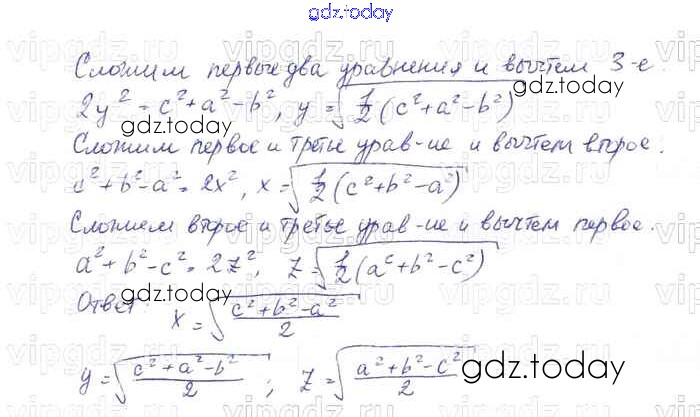 gdz.today
Сложим первые два уравнения и вычтем 3-е
2y² = c² + a² - b², y = √(1/2 (c² + a² - b²))
gdz.today
Сложим первое и третье урав-ие и вычтем второе.
c² + b² - a² = 2x², x = √(1/2 (c² + b² - a²))
gdz.today
Сложим второе и третье урав-ие и вычтем первое.
a² + b² - c² = 2z², z = √(1/2 (a² + b² - c²))
gdz.today
Ответ: x = √((c² + b² - a²)/2)
y = √((c² + a² - b²)/2); z = √((a² + b² - c²)/2)
gdz.today